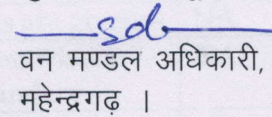 sd
वन मण्डल अधिकारी,
महेन्द्रगढ़ ।